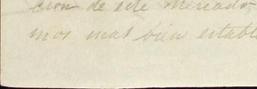 cion de este mercado,
mos mas bien establ